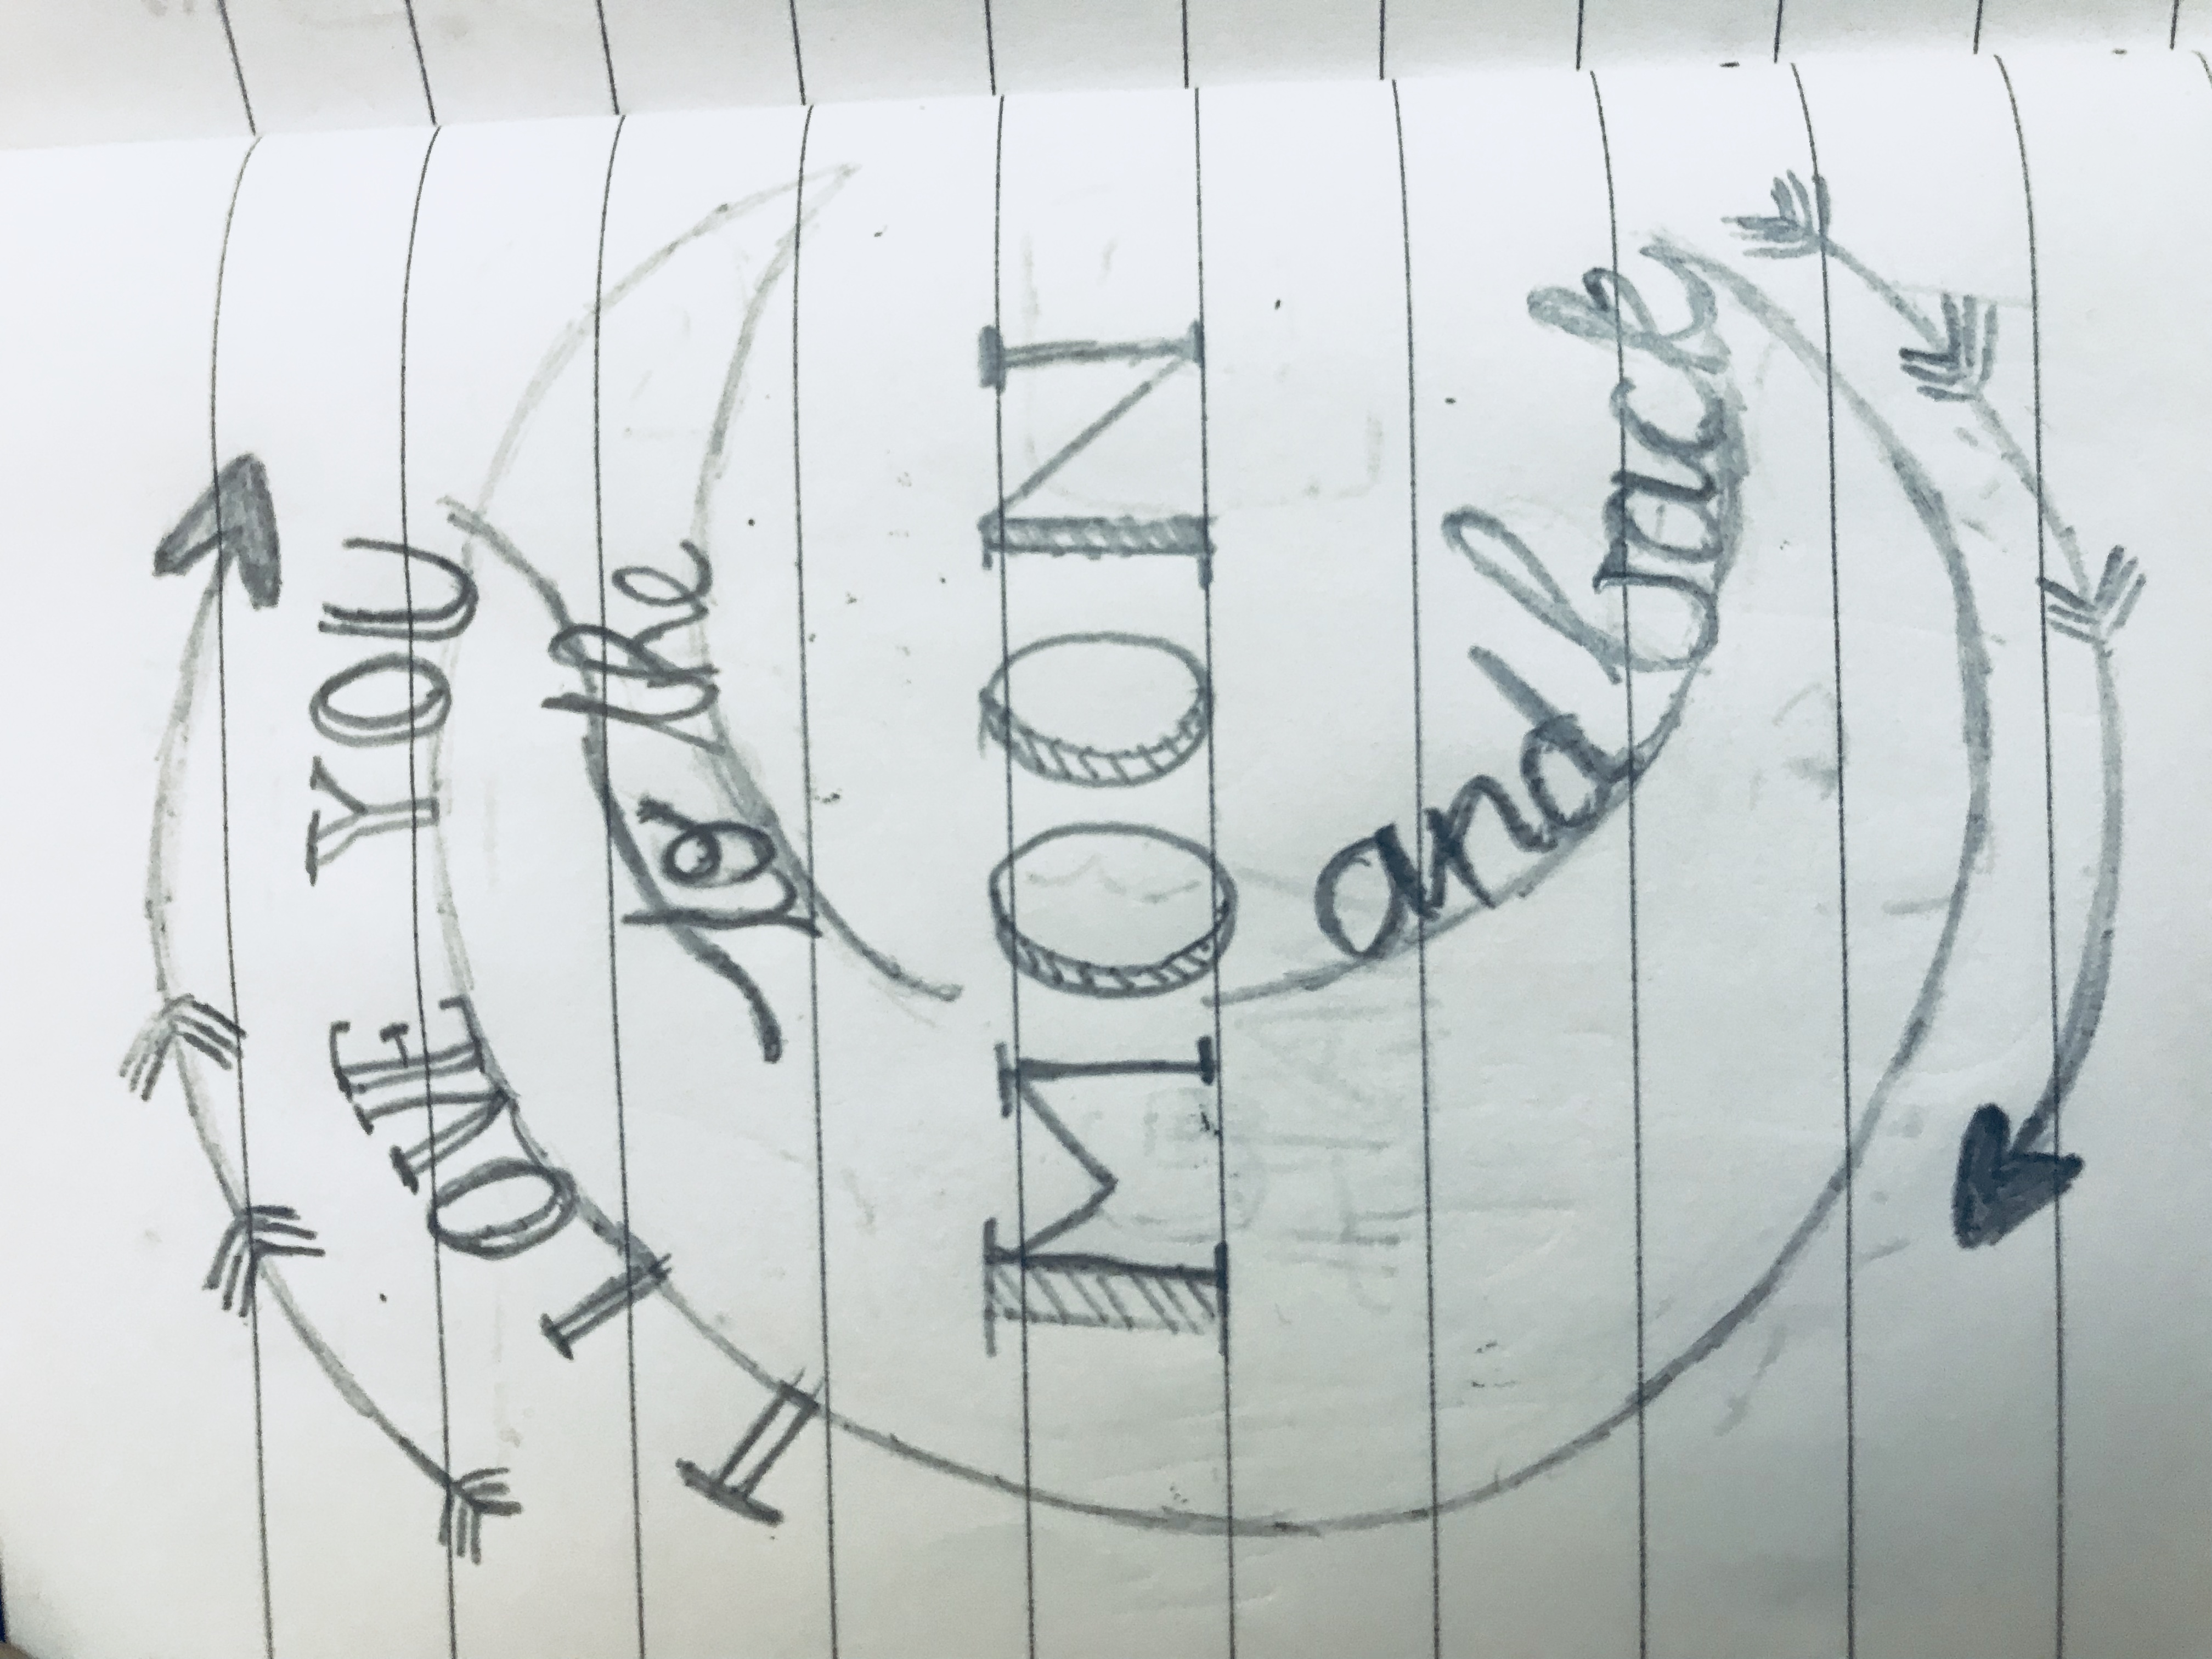 I LOVE YOU
to the
MOON
and back